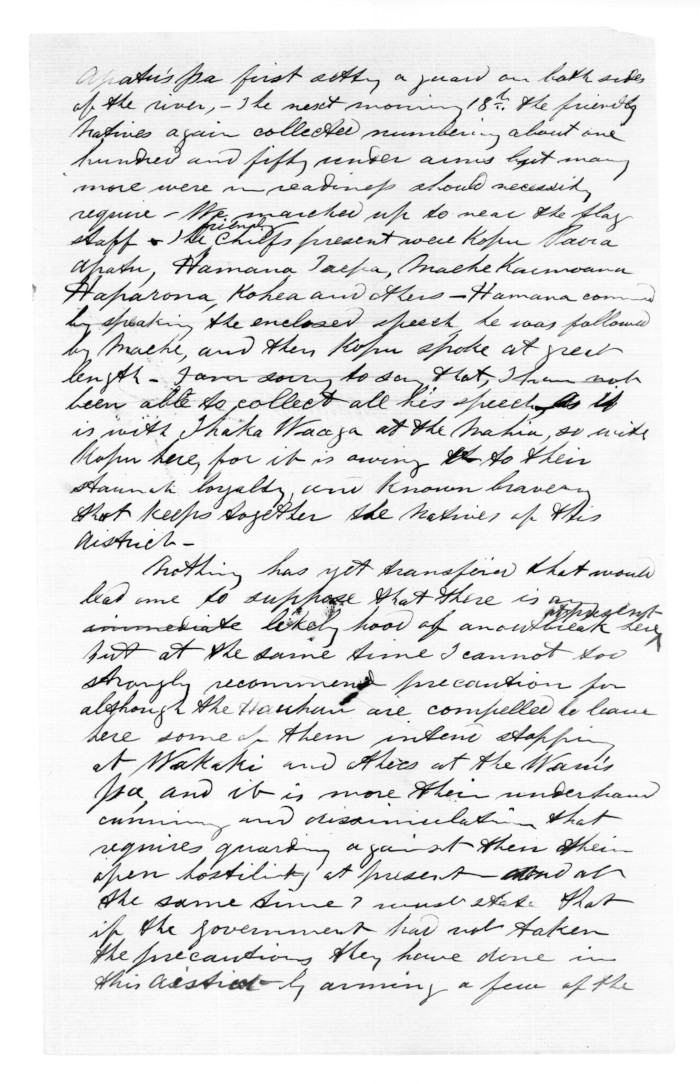 Apatu's pa first setting a guard on both sides
of the river, - The next morning 18th the friendly
Natives again collected numbering about one
hundred and fifty under arms but many
more were in readiness should necessity
require - We marched up to near the flag
staff - The friendly Chiefs present were Kopu Paora
Apatu, Hamana Taepa, Maehe Kaimoana
Haparona, Kohea and others - Hamana commenced
by speaking the enclosed speech he was followed
by Maehe, and then Kopu spoke at great
length - I am sorry to say that, I have not
been able to collect all his speech, as it
is with Ihaka Waaga at the Mahia, so with
Kopu here, for it is owing to their
staunch loyalty, and known bravery
that keeps together the Natives of this
district -
Nothing has yet transpired that would
lead me to suppose that there is an
immediate apparent likely hood of an outbreak here
but at the same time I cannot too
strongly recommend precaution for
although the Hauhau are compelled to leave
here some of them intend stopping
at Wakaki and others at the
Pa, and it is more their underhand
cunning and dissimulation that
requires guarding against then their
open hostility at present - and at
the same time I must state that
if the government had not taken
the precautions they have done in
this district by arming a few of the